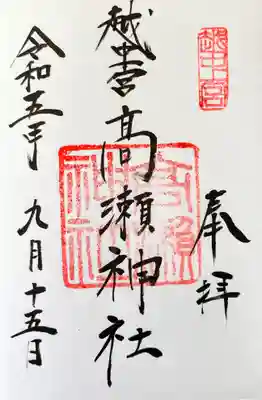 越中一宮
奉拝
越中一宮 高瀬神社
令和五年 九月十五日